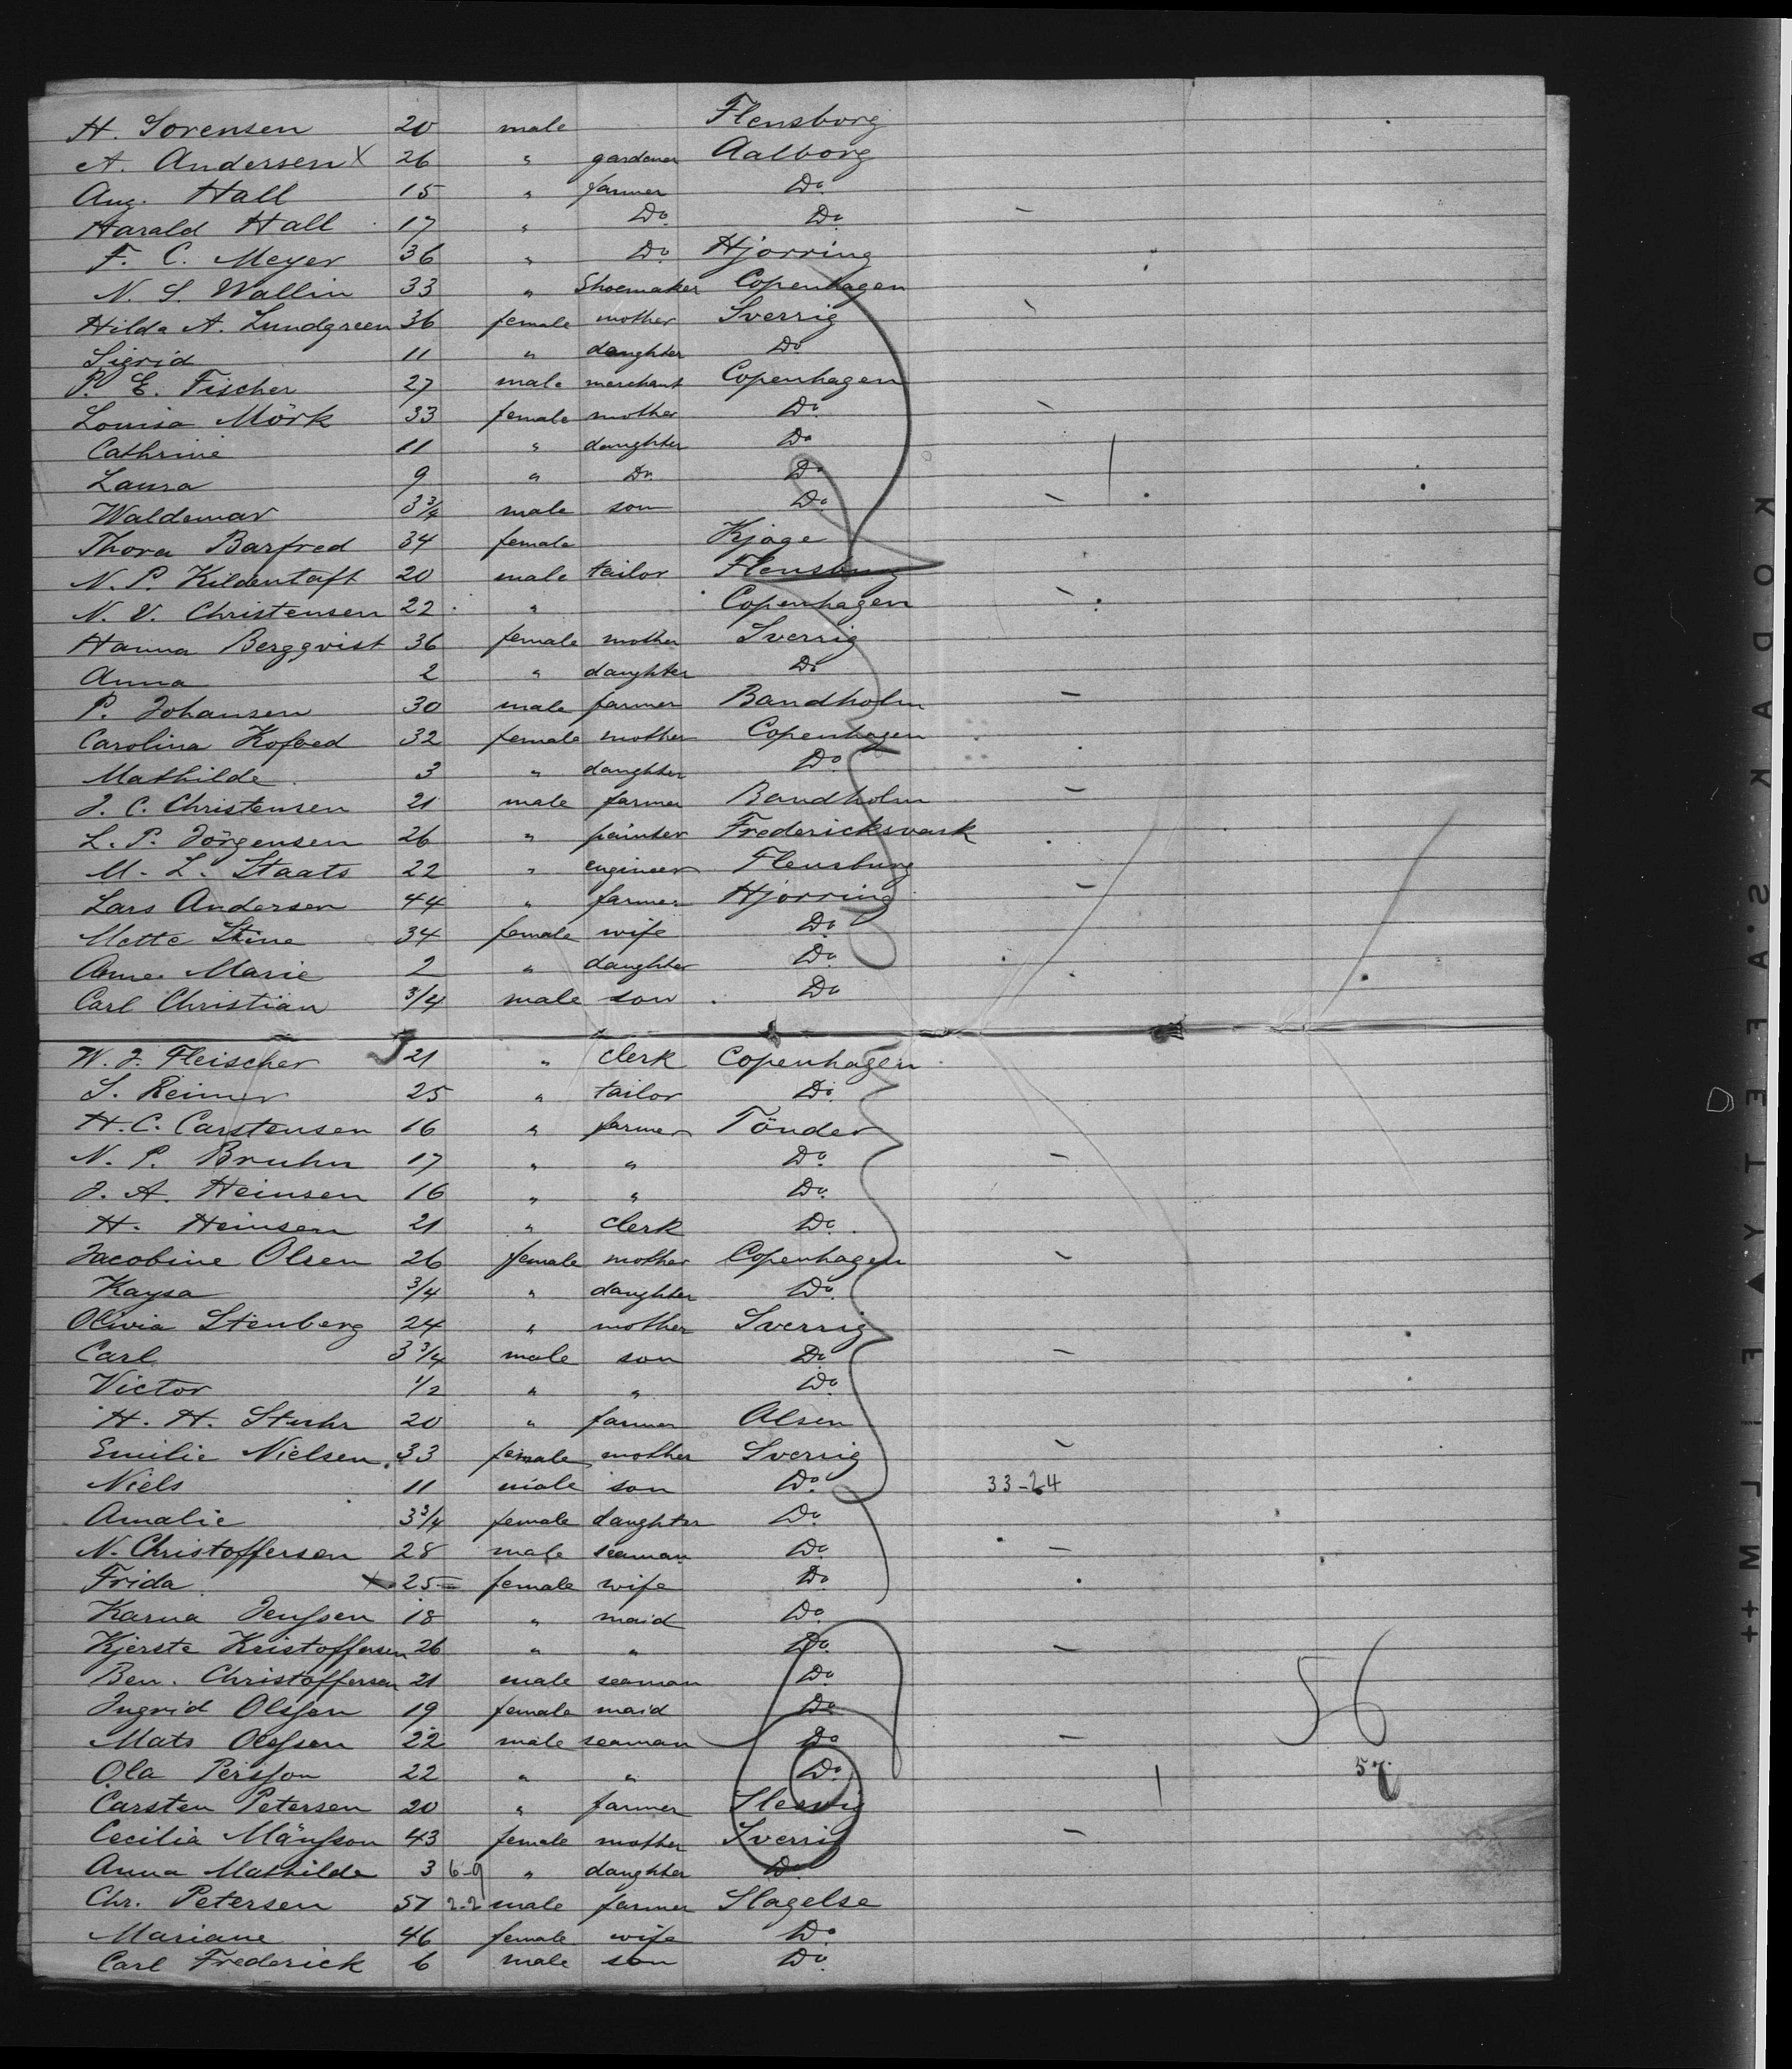 H. Sorensen 20 male Flensborg
A. Andersen X 26 " gardener Aalborg
Aug. Hall 15 " farmer Do.
Harald Hall 17 " Do. Do.
F. C. Meyer 36 " Do. Hjorring
N. S. Wallin 33 " Shoemaker Copenhagen
Hilda A. Lundgreen 36 female mother Sverrig
Sigrid 11 " daughter Do
P. E. Fischer 27 male merchant Copenhagen
Louisa Mörk 33 female mother Do.
Cathrine 11 " daughter Do
Laura 9 " Do. Do
Waldemar 3 3/4 male son Do.
Thora Barfred 34 female Kjøge
N. P. Kildentoft 20 male tailor Flensburg
N. V. Christensen 22 " Copenhagen
Hanna Bergqvist 36 female mother Sverrig
Anna 2 " daughter Do
P. Johansen 30 male farmer Bandholm
Carolina Kofoed 32 female mother Copenhagen
Mathilde 3 " daughter Do.
J. C. Christensen 21 male farmer Bandholm
L. P. Jörgensen 26 " painter Fredericksvark
M. L. Staats 22 " engineer Flensburg
Lars Andersen 44 " farmer Hjorring
Mette Stine 34 female wife Do.
Anne Marie 2 " daughter Do.
Carl Christian 3/4 male son Do
W. J. Fleischer 21 " clerk Copenhagen
S. Reimer 25 " tailor Do.
H. C. Carstensen 16 " farmer Tönder
N. P. Bruhn 17 " " Do.
J. A. Heinsen 16 " " Do.
H. Heinsen 21 " clerk Do.
Jacobine Olsen 26 female mother Copenhagen
Kaysa 3/4 " daughter Do.
Olivia Stenberg 24 " mother Sverrig
Carl 3 3/4 male son Do.
Victor 1/2 " " Do.
H. H. Stuhr 20 " farmer Alsen
Emilie Nielsen 33 female mother Sverrig
Niels 11 male son Do. 33-24
Amalie 3 3/4 female daughter Do.
N. Christoffersen 28 male seaman Do
Frida X 25 female wife Do
Karna Jenssen 18 " maid Do.
Kjerste Kristoffersen 26 " " Do.
Ben. Christoffersen 21 male seaman Do
Ingrid Olsson 19 female maid Do 56
Mats Olsson 22 male seaman Do
Ola Persson 22 " " Do. 57
Carsten Petersen 20 " farmer Slesvig
Cecilia Månsson 43 female mother Sverrig
Anna Mathilde 3 6-9 " daughter Do
Chr. Petersen 51 2-2 male farmer Slagelse
Mariane 46 female wife Do
Carl Frederick 6 male son Do.
KODAK S.A.FETY ▲ FILM ++